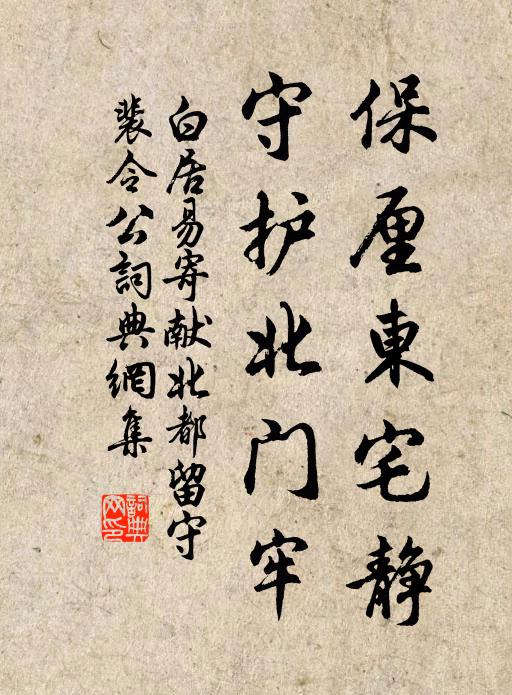 保厘東宅静
守护北门牢
白居易寄献北都留守
裴令公詞典網集
詞典
网印